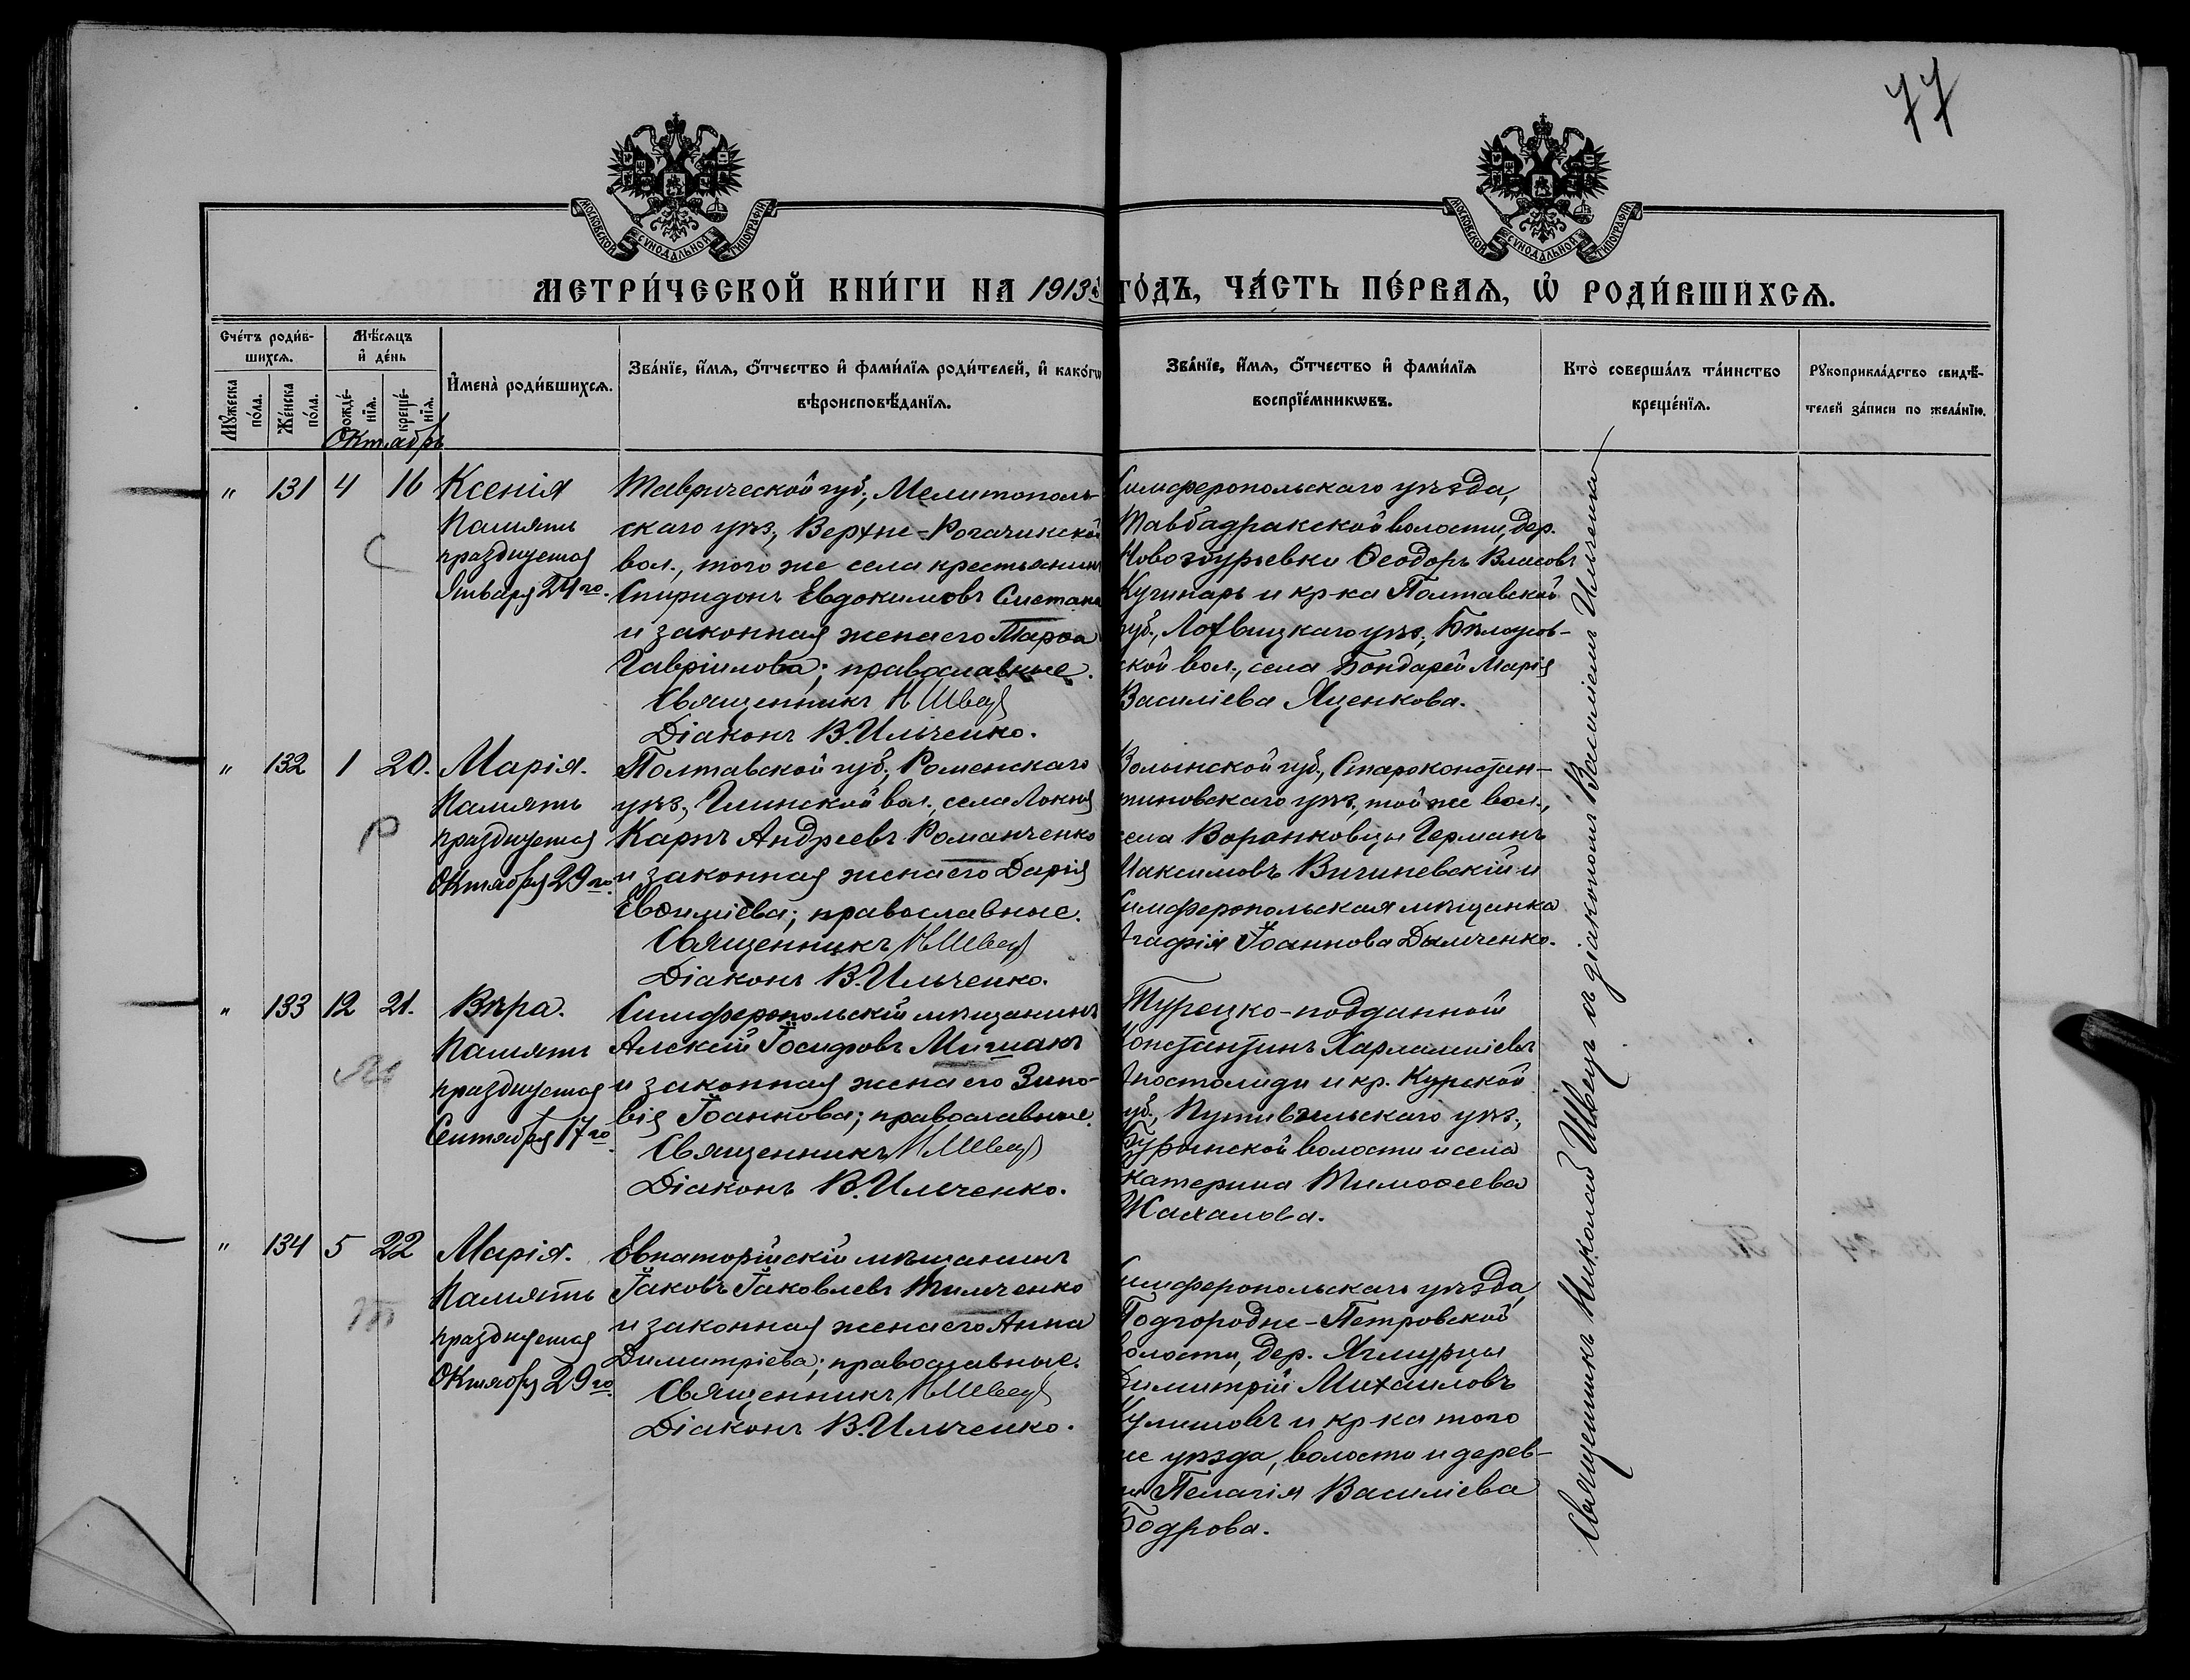 77
МОСКОВСКОЙ СѴНОДАЛЬНОЙ ТИПОГРАФІИ
МОСКОВСКОЙ СѴНОДАЛЬНОЙ ТИПОГРАФІИ
МЕТРИ́ЧЕСКОЙ КНИ́ГИ НА 1913й ГОДЪ, ЧА́СТЬ ПЕ́РВАѦ, Ѡ҆ РОДИ́ВШИХСѦ.
Сче́тъ роди́в-
шихсѧ.
Мꙋ́жеска
по́ла.
Же́нска
по́ла.
Мѣ́сѧцъ
и҆ де́нь
рожде́-
нїѧ.
креще́-
нїѧ.
Октябрь
И҆мена̀ роди́вшихсѧ.
Зва́нїе, и҆́мѧ, ѻ҆́тчество и҆ фами́лїѧ роди́телей, и҆ како́гѡ
вѣроисповѣ́данїѧ.
Зва́нїе, и҆́мѧ, ѻ҆́тчество и҆ фами́лїѧ
воспрїе́мникѡвъ.
Кто̀ соверша́лъ та́инство
креще́нїѧ.
Рꙋкоприкла́дство свидѣ́-
телей за́писи по жела́нїю.
" 131 4 16
Ксенія
Память
празднуется
Января 24го.
С
Таврической губ., Мелитополь-
скаго уѣз., Верхне-Рогачикской
вол., того же села крестьянинъ
Спиридонъ Евдокимовъ Сметана
и законная жена его Марѳа
Гавріилова; православные.
Священникъ Н Швец
Діаконъ В. Ильченко.
Симферопольскаго уѣзда,
волости, дер.
Ѳеодоръ Власовъ
и кр-ка Полтавской
губ., Лохвицкаго уѣз., Бѣлоусов-
ской вол., села Бондарей Марія
Василіева Яценкова.
" 132 1 20.
Марія.
Память
празднуется
Октября 29го.
Р
Полтавской губ., Роменскаго
уѣз., Глинской вол., села Локня
Карпъ Андреевъ Романченко
и законная жена его Дарія
Евѳиміева; православные.
Священникъ Н Швец
Діаконъ В. Ильченко.
Волынской губ., Староконстан-
тиновскаго уѣз., той же вол.,
села Воронковцы Германъ
Максимовъ Вигиневскій и
Симферопольская мѣщанка
Агафія Іоаннова Дымченко.
" 133 12 21.
Вѣра.
Память
празднуется
Сентября 17го.
М
Симферопольскій мѣщанинъ
Алексій Іосифовъ Мишакъ
и законная жена его Зино-
вія Іоаннова; православные.
Священникъ Н Швец
Діаконъ В. Ильченко.
Турецко-подданной
Константинъ Харлампіевъ
Апостолиди и кр. Курской
губ., Путивльскаго уѣз.,
Бурынской волости и села
Екатерина Тимоѳеева
Жахалова.
" 134 5 22
Марія.
Память
празднуется
Октября 29го
Т
Евпаторійскій мѣщанинъ
Іаковъ Іаковлевъ Тимченко
и законная жена его Анна
Димитріева; православные.
Священникъ Н Швец
Діаконъ В. Ильченко.
Симферопольскаго уѣзда,
Подгородне-Петровской
волости, дер.
Димитрій Михаиловъ
Кулишовъ и кр-ка того
же уѣзда, волости и дерев-
ни Пелагія Василіева
Бодрова.
Священникъ Николай Швецъ съ діакономъ Василіемъ Ильченко